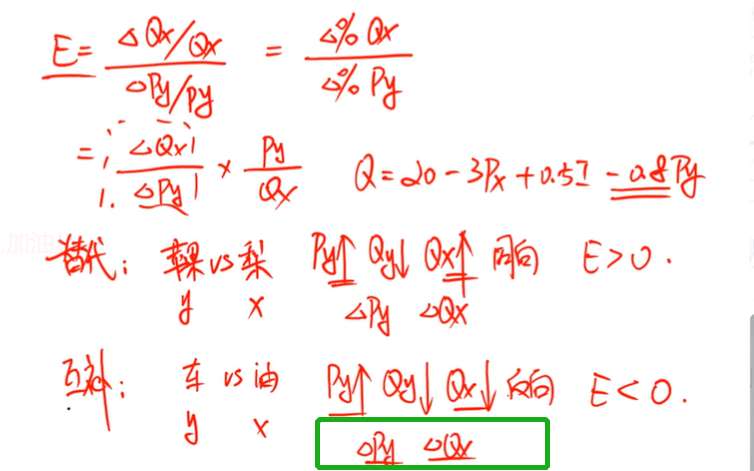 E = ΔQx/Qx / ΔPy/Py = Δ%Qx / Δ%Py
= ΔQx / ΔPy × Py / Qx Q = 20 - 3Px + 0.5I - 0.8Py
替代: 苹果 vs 梨 Py↑ Qy↓ Qx↑ 同向 E>0.
y x ΔPy ΔQx
互补: 车 vs 油 Py↑ Qy↓ Qx↓ 反向 E<0.
y x ΔPy ΔQx